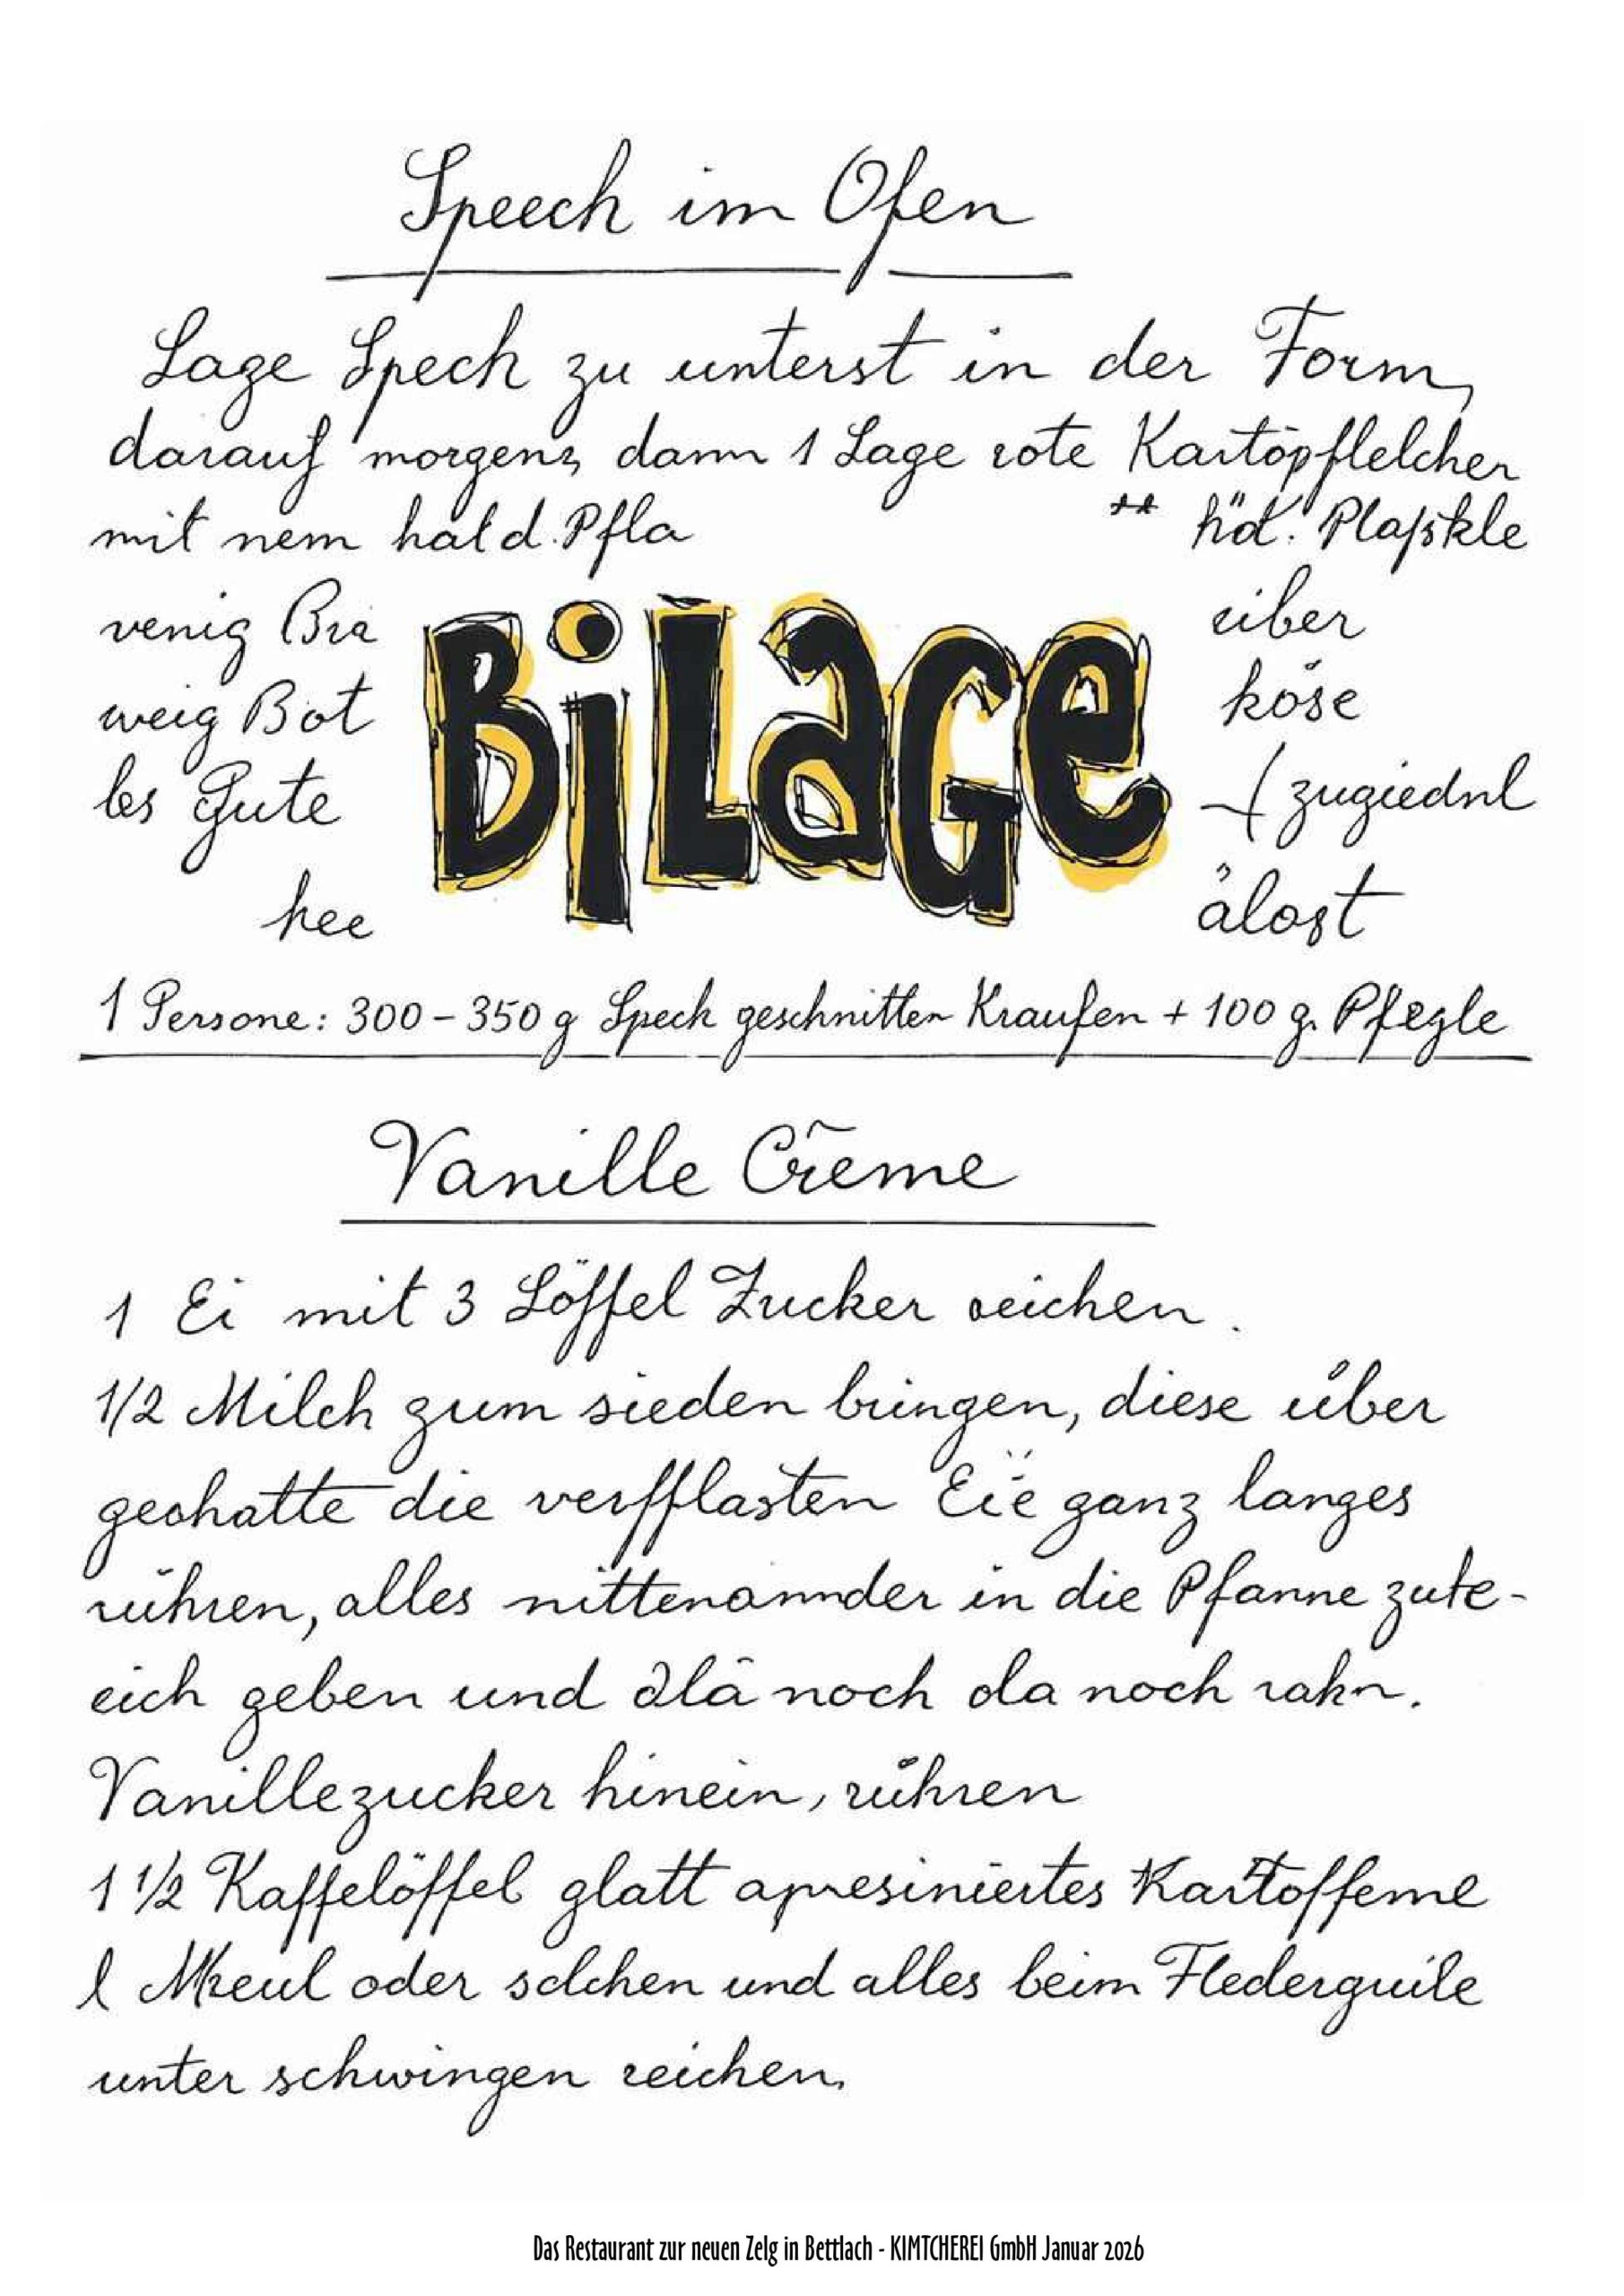 Speech im Ofen
Lage Speck zu unterst in der Form,
darauf morgens, dann 1 Lage rote Kartöpflelcher
mit nem hald. Pfla ** häd. Plaßkle
venig Bra über
weig Bot köse
BiLaGe
les Gute zugiednl
hee ålost
1 Persone: 300-350 g Speck geschnitten Kraufen + 100 g. Pfegle
Vanille Crème
1 Ei mit 3 Löffel Zucker reichen.
1/2 Milch zum sieden bringen, diese über
geohatte die verfflasten Eïe ganz langes
rühren, alles nittenannder in die Pfanne zute-
eich geben und älä noch da noch rahn.
Vanillezucker hinein, rühren
1 1/2 Kaffelöffel glatt apresiniertes Kartoffeme
l Mkeul oder solchen und alles beim Flederguile
unter schwingen reichen.
Das Restaurant zur neuen Zelg in Bettlach - KIMTCHEREI GmbH Januar 2026